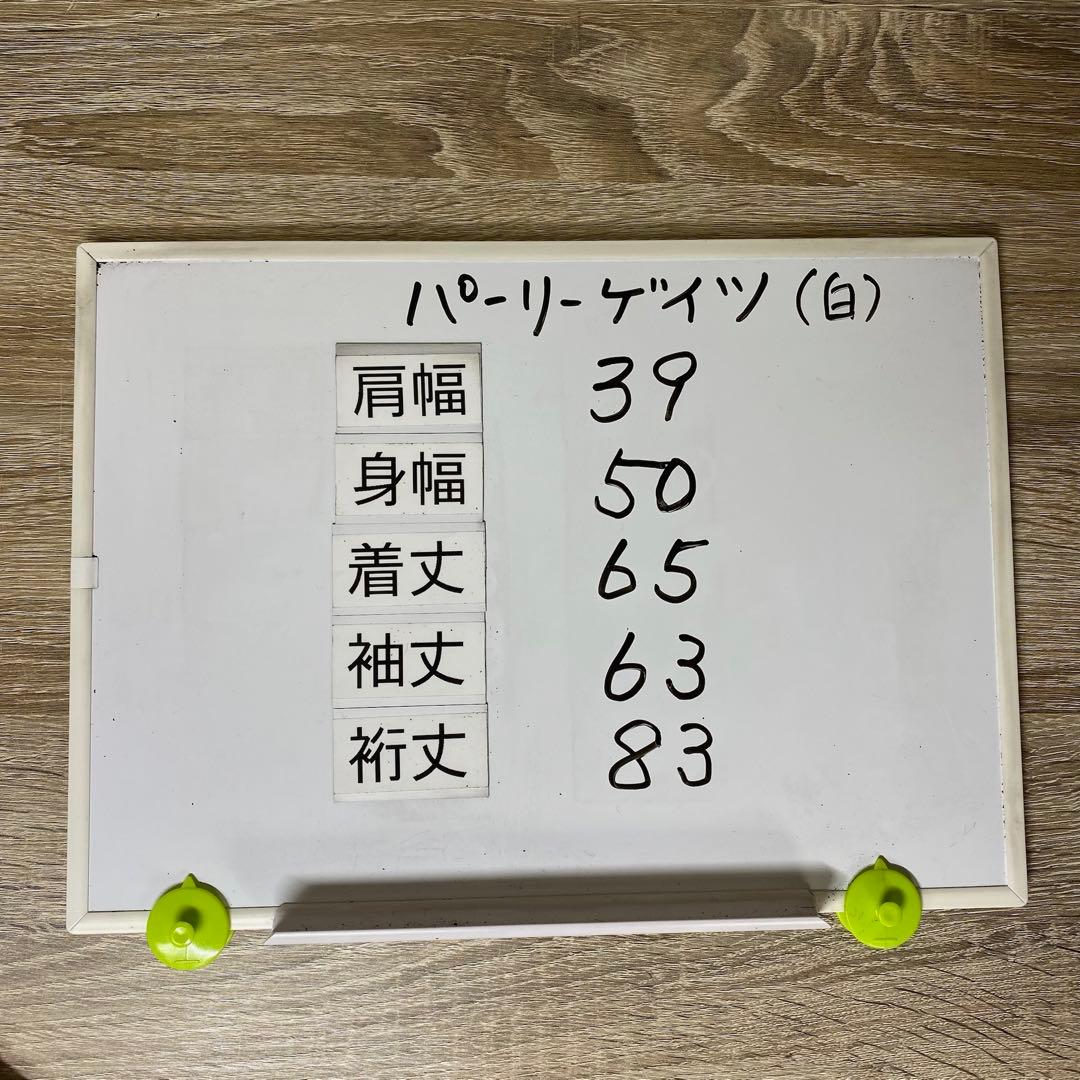 パーリーゲイツ(白)
肩幅 39
身幅 50
着丈 65
袖丈 63
裄丈 83